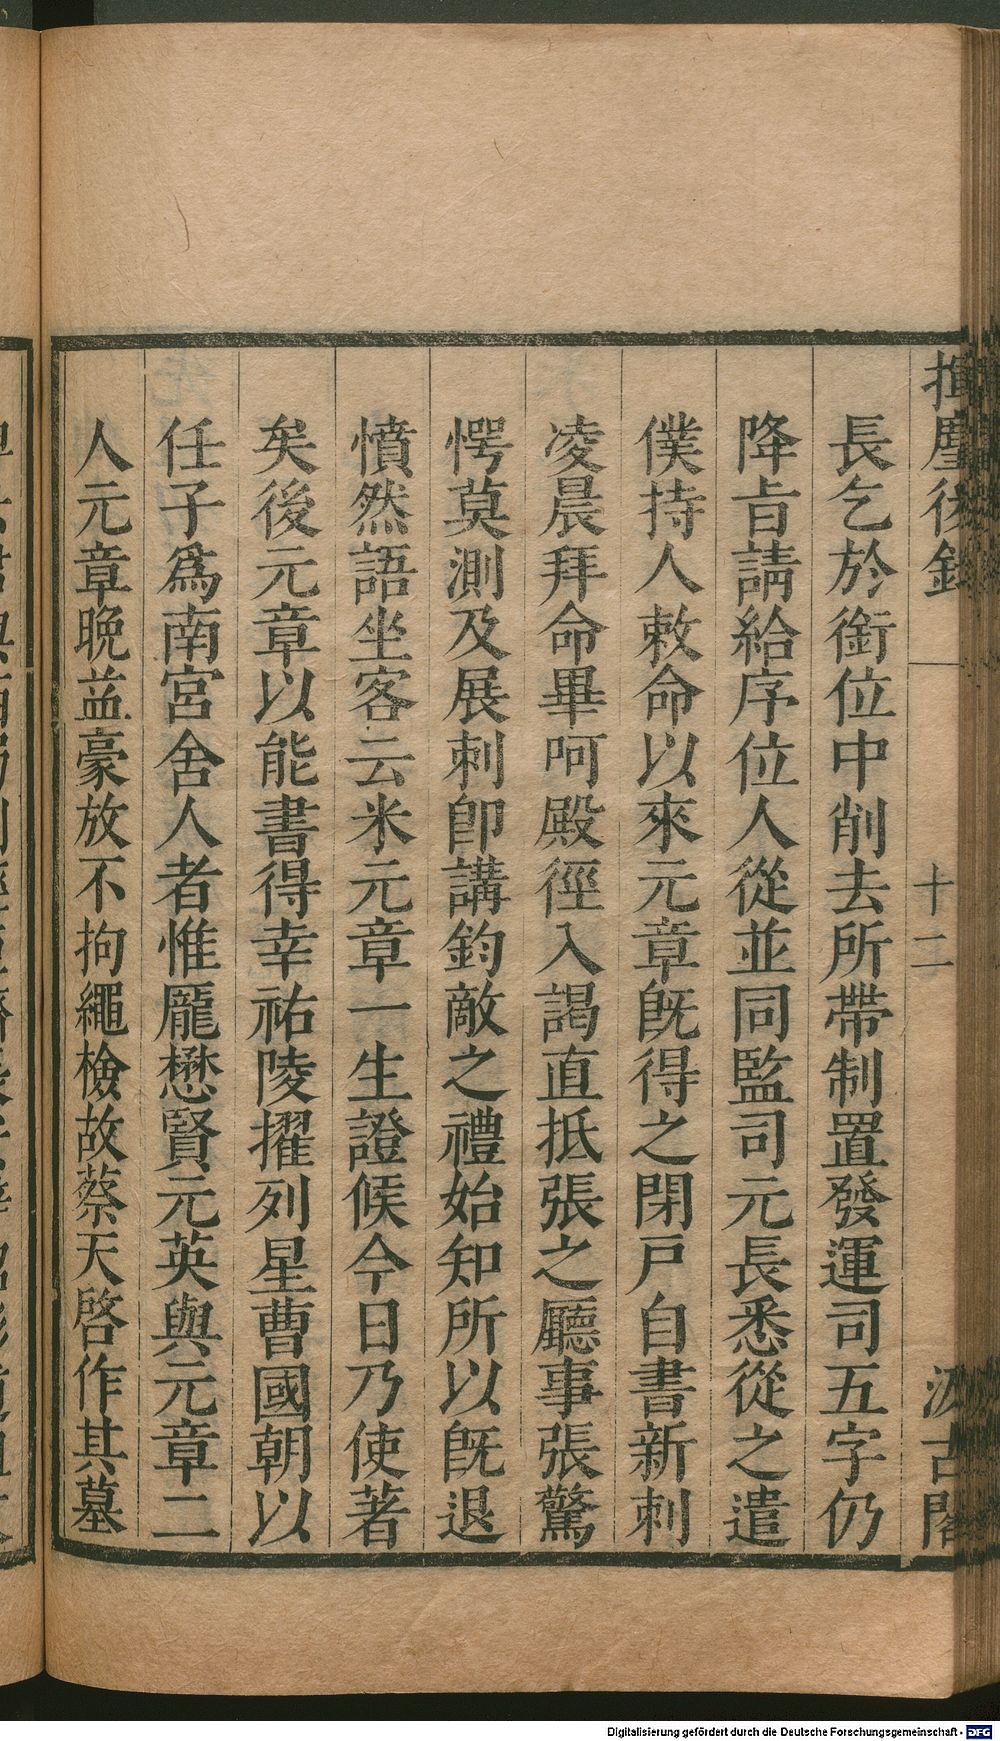 揮麈後錄
十二
汲古閣
長乞於銜位中削去所帶制置發運司五字仍
降㫖請給序位人從並同監司元長悉從之遣
僕持人敕命以來元章旣得之閉戸自書新刺
凌晨拜命畢呵殿徑入謁直抵張之廳事張驚
愕莫測及展刺卽講鈞敵之禮始知所以旣退
憤然語坐客云米元章一生證候今日乃使著
矣後元章以能書得幸祐陵擢列星曹國朝以
任子爲南宮舍人者惟龐懋賢元英與元章二
人元章晚益豪放不拘繩檢故蔡天啓作其墓
Digitalisierung gefördert durch die Deutsche Forschungsgemeinschaft - DFG